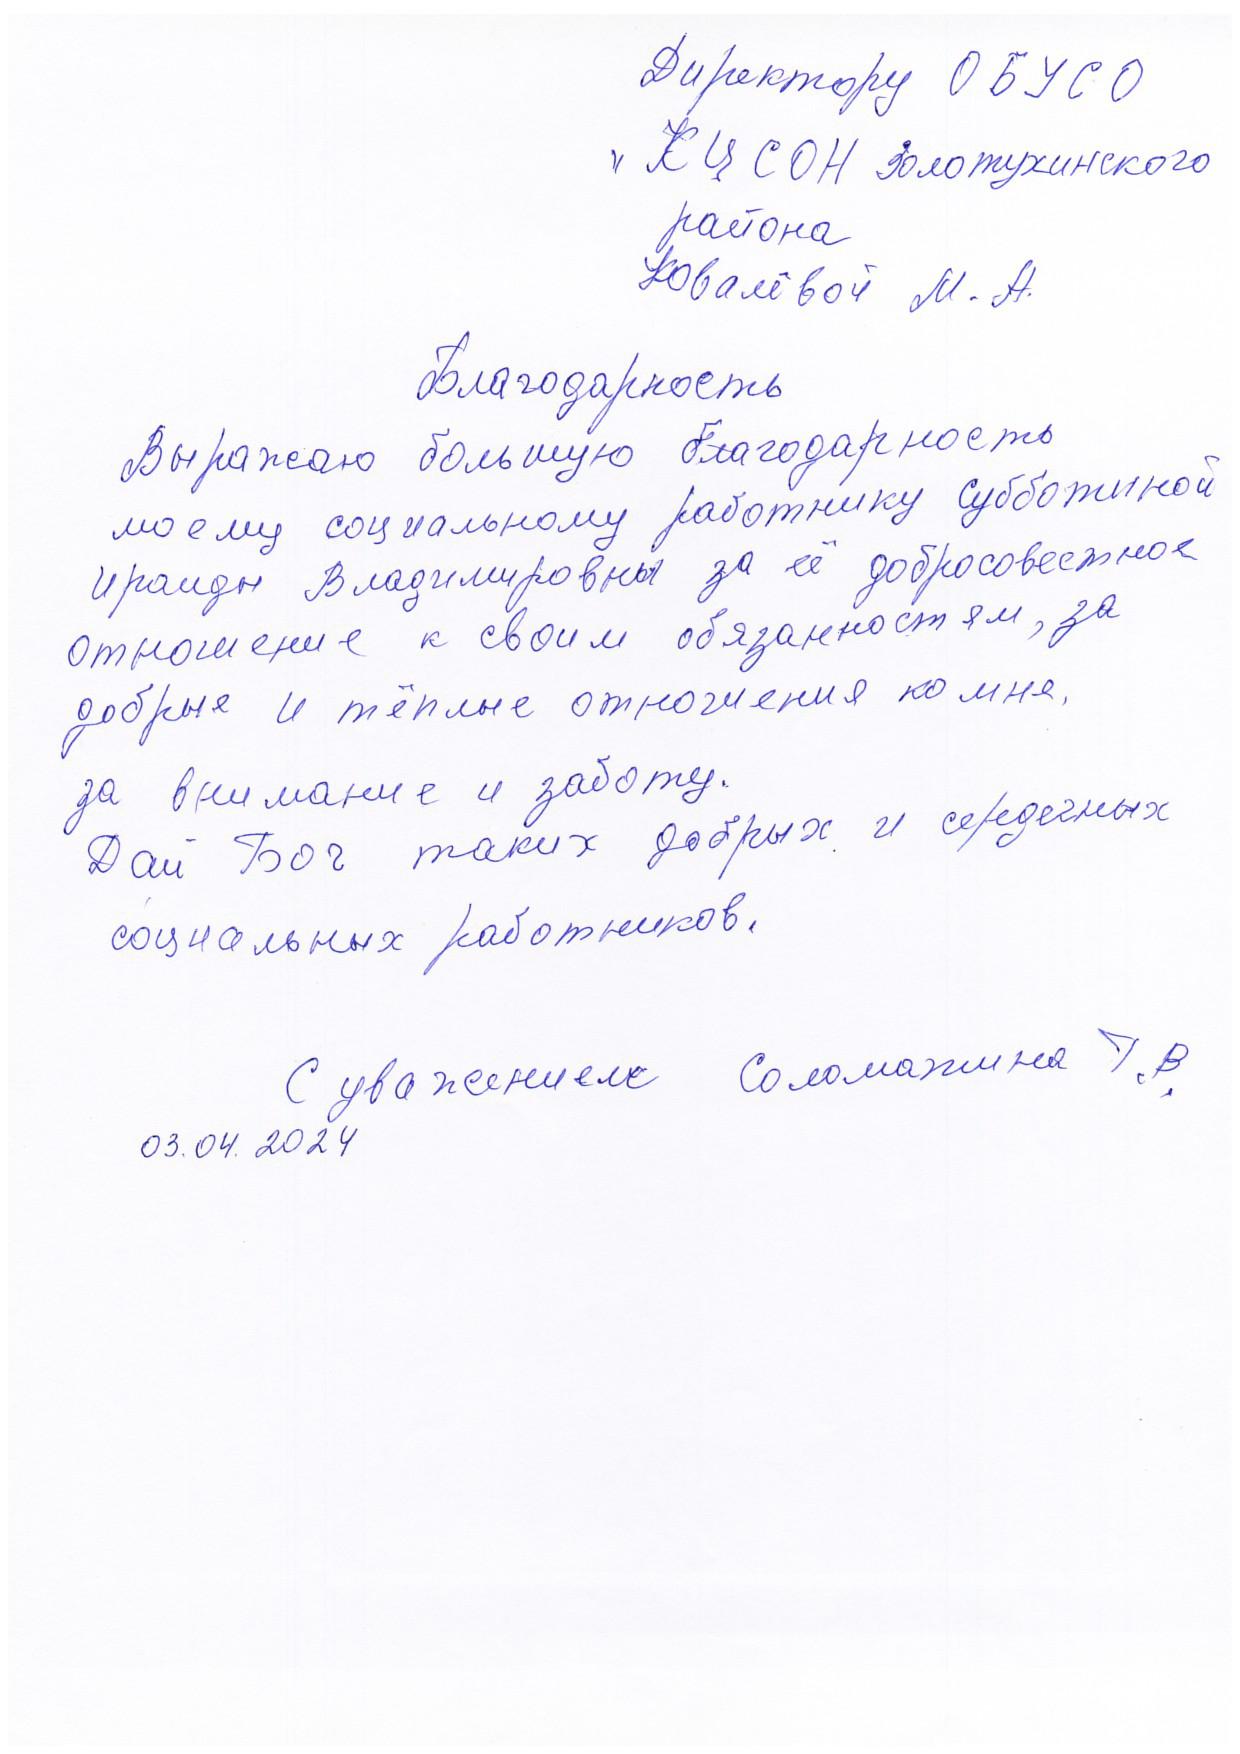 Директору ОБУСО
"КЦСОН Золотухинского
района
Ковалёвой М.А.
Благодарность
Выражаю большую благодарность
моему социальному работнику Субботиной
Ираиды Владимировны за её добросовестное
отношение к своим обязанностям, за
добрые и тёплые отношения ко мне,
за внимание и заботу.
Дай Бог таких добрых и сердечных
социальных работников.
С уважением Соломахина Т.В.
03.04.2024